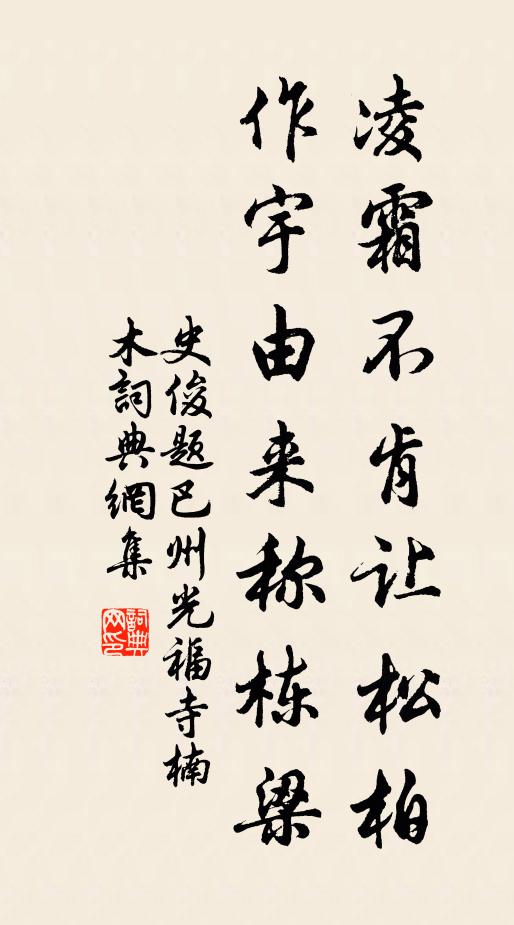 凌霜不肯让松柏
作宇由来称栋梁
史俊题巴州光福寺楠
木詞典網集
詞典
网印